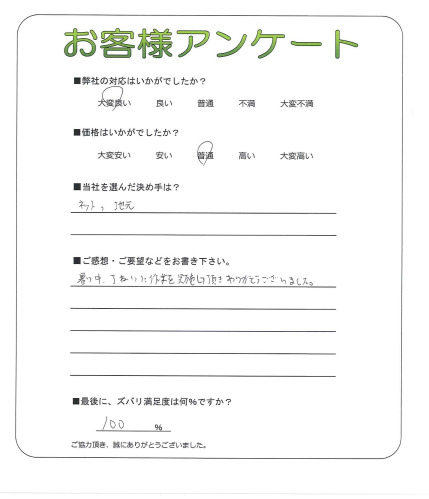 お客様アンケート
■弊社の対応はいかがでしたか？
大変良い 良い 普通 不満 大変不満
■価格はいかがでしたか？
大変安い 安い 普通 高い 大変高い
■当社を選んだ決め手は？
ネット、地元
■ご感想・ご要望などをお書き下さい。
暑い中、ていねいに作業を実施して頂きありがとうございました。
■最後に、ズバリ満足度は何%ですか？
100 %
ご協力頂き、誠にありがとうございました。